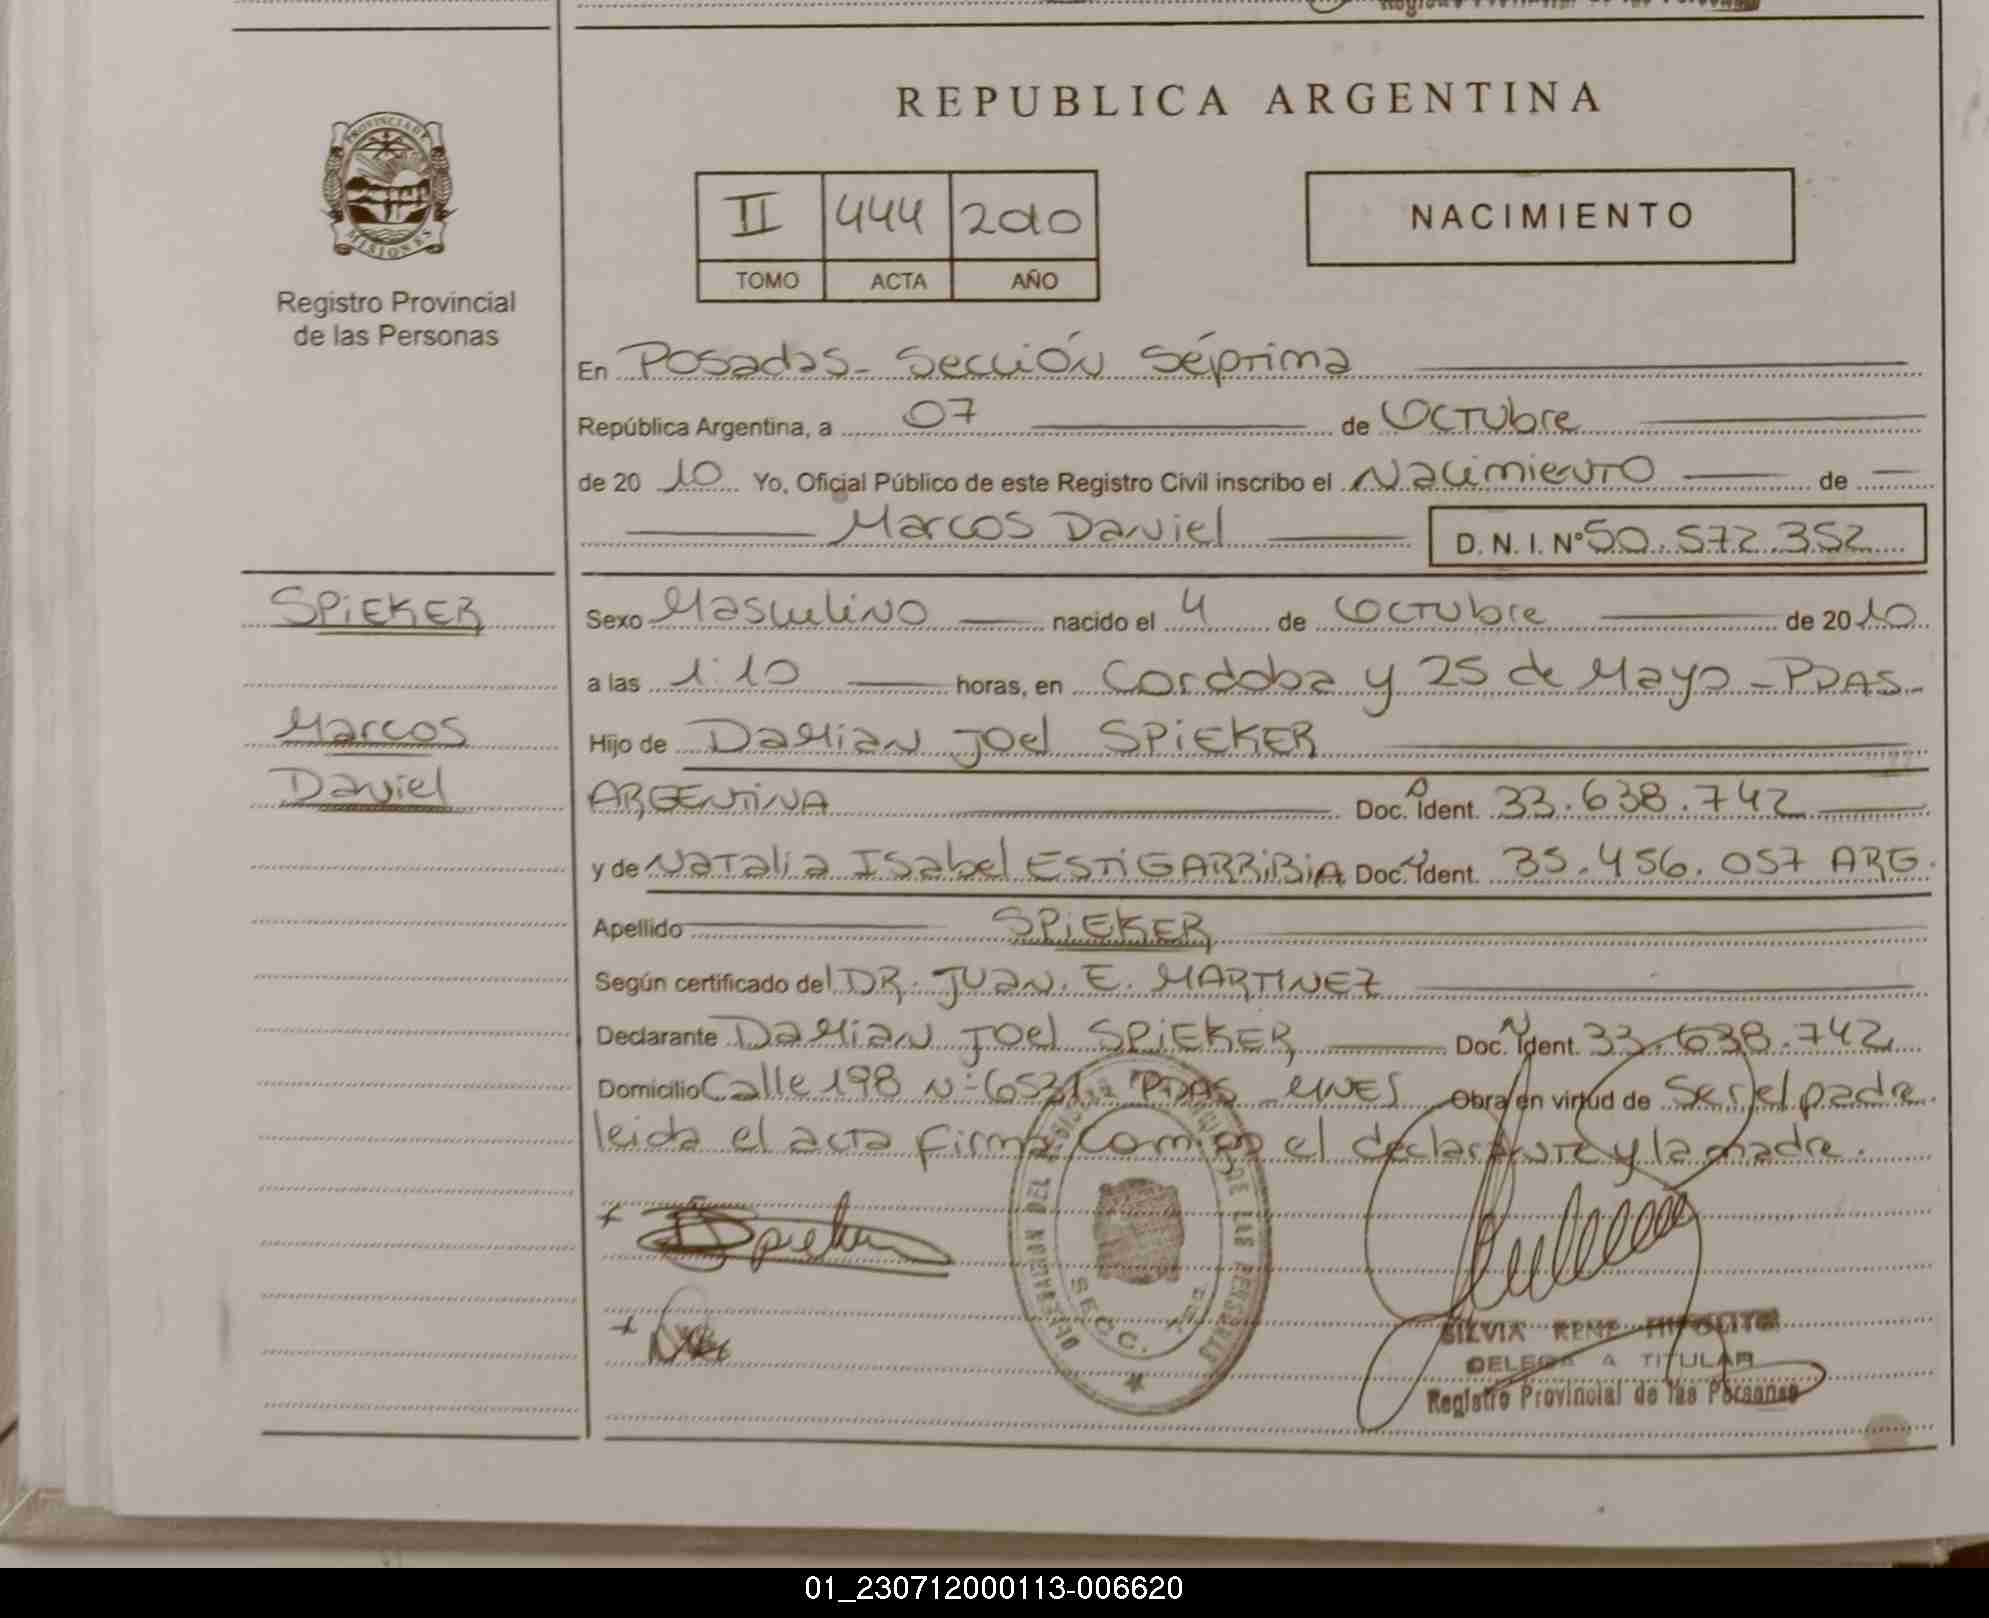 REPUBLICA ARGENTINA
PROVINCIA DE
MISIONES
Registro Provincial
de las Personas
II 444 2010
TOMO ACTA AÑO
NACIMIENTO
En Posadas - Sección Séptima
República Argentina, a 07 de Octubre
de 20 10 Yo, Oficial Público de este Registro Civil inscribo el Nacimiento de
Marcos Daniel D. N. I. N° 50.572.352
SPiEKER
Marcos
Daniel
Sexo Masculino nacido el 4 de Octubre de 20 10
a las 1:10 horas, en Cordoba y 25 de Mayo - PDAS -
Hijo de Damian Joel SPiEKER
ARGENTINA Doc. Ident. 33.638.742
y de Natalia Isabel ESTiGARRiBiA Doc. Ident. 35.456.057 ARG.
Apellido SPiEKER
Según certificado del DR. JUAN. E. MARTINEZ
Declarante Damian Joel SPiEKER Doc. Ident. 33.638.742
Domicilio Calle 198 N° 6531 PDAS - MNES Obra en virtud de Ser el padre
leida el acta firma Conmigo el declarante y la madre.
Spieker
DELEGACION DEL REGISTRO DE LAS PERSONAS
SECC. 7
SILVIA RENE HIPOLITO
DELEGADA TITULAR
Registro Provincial de las Personas
01_230712000113-006620